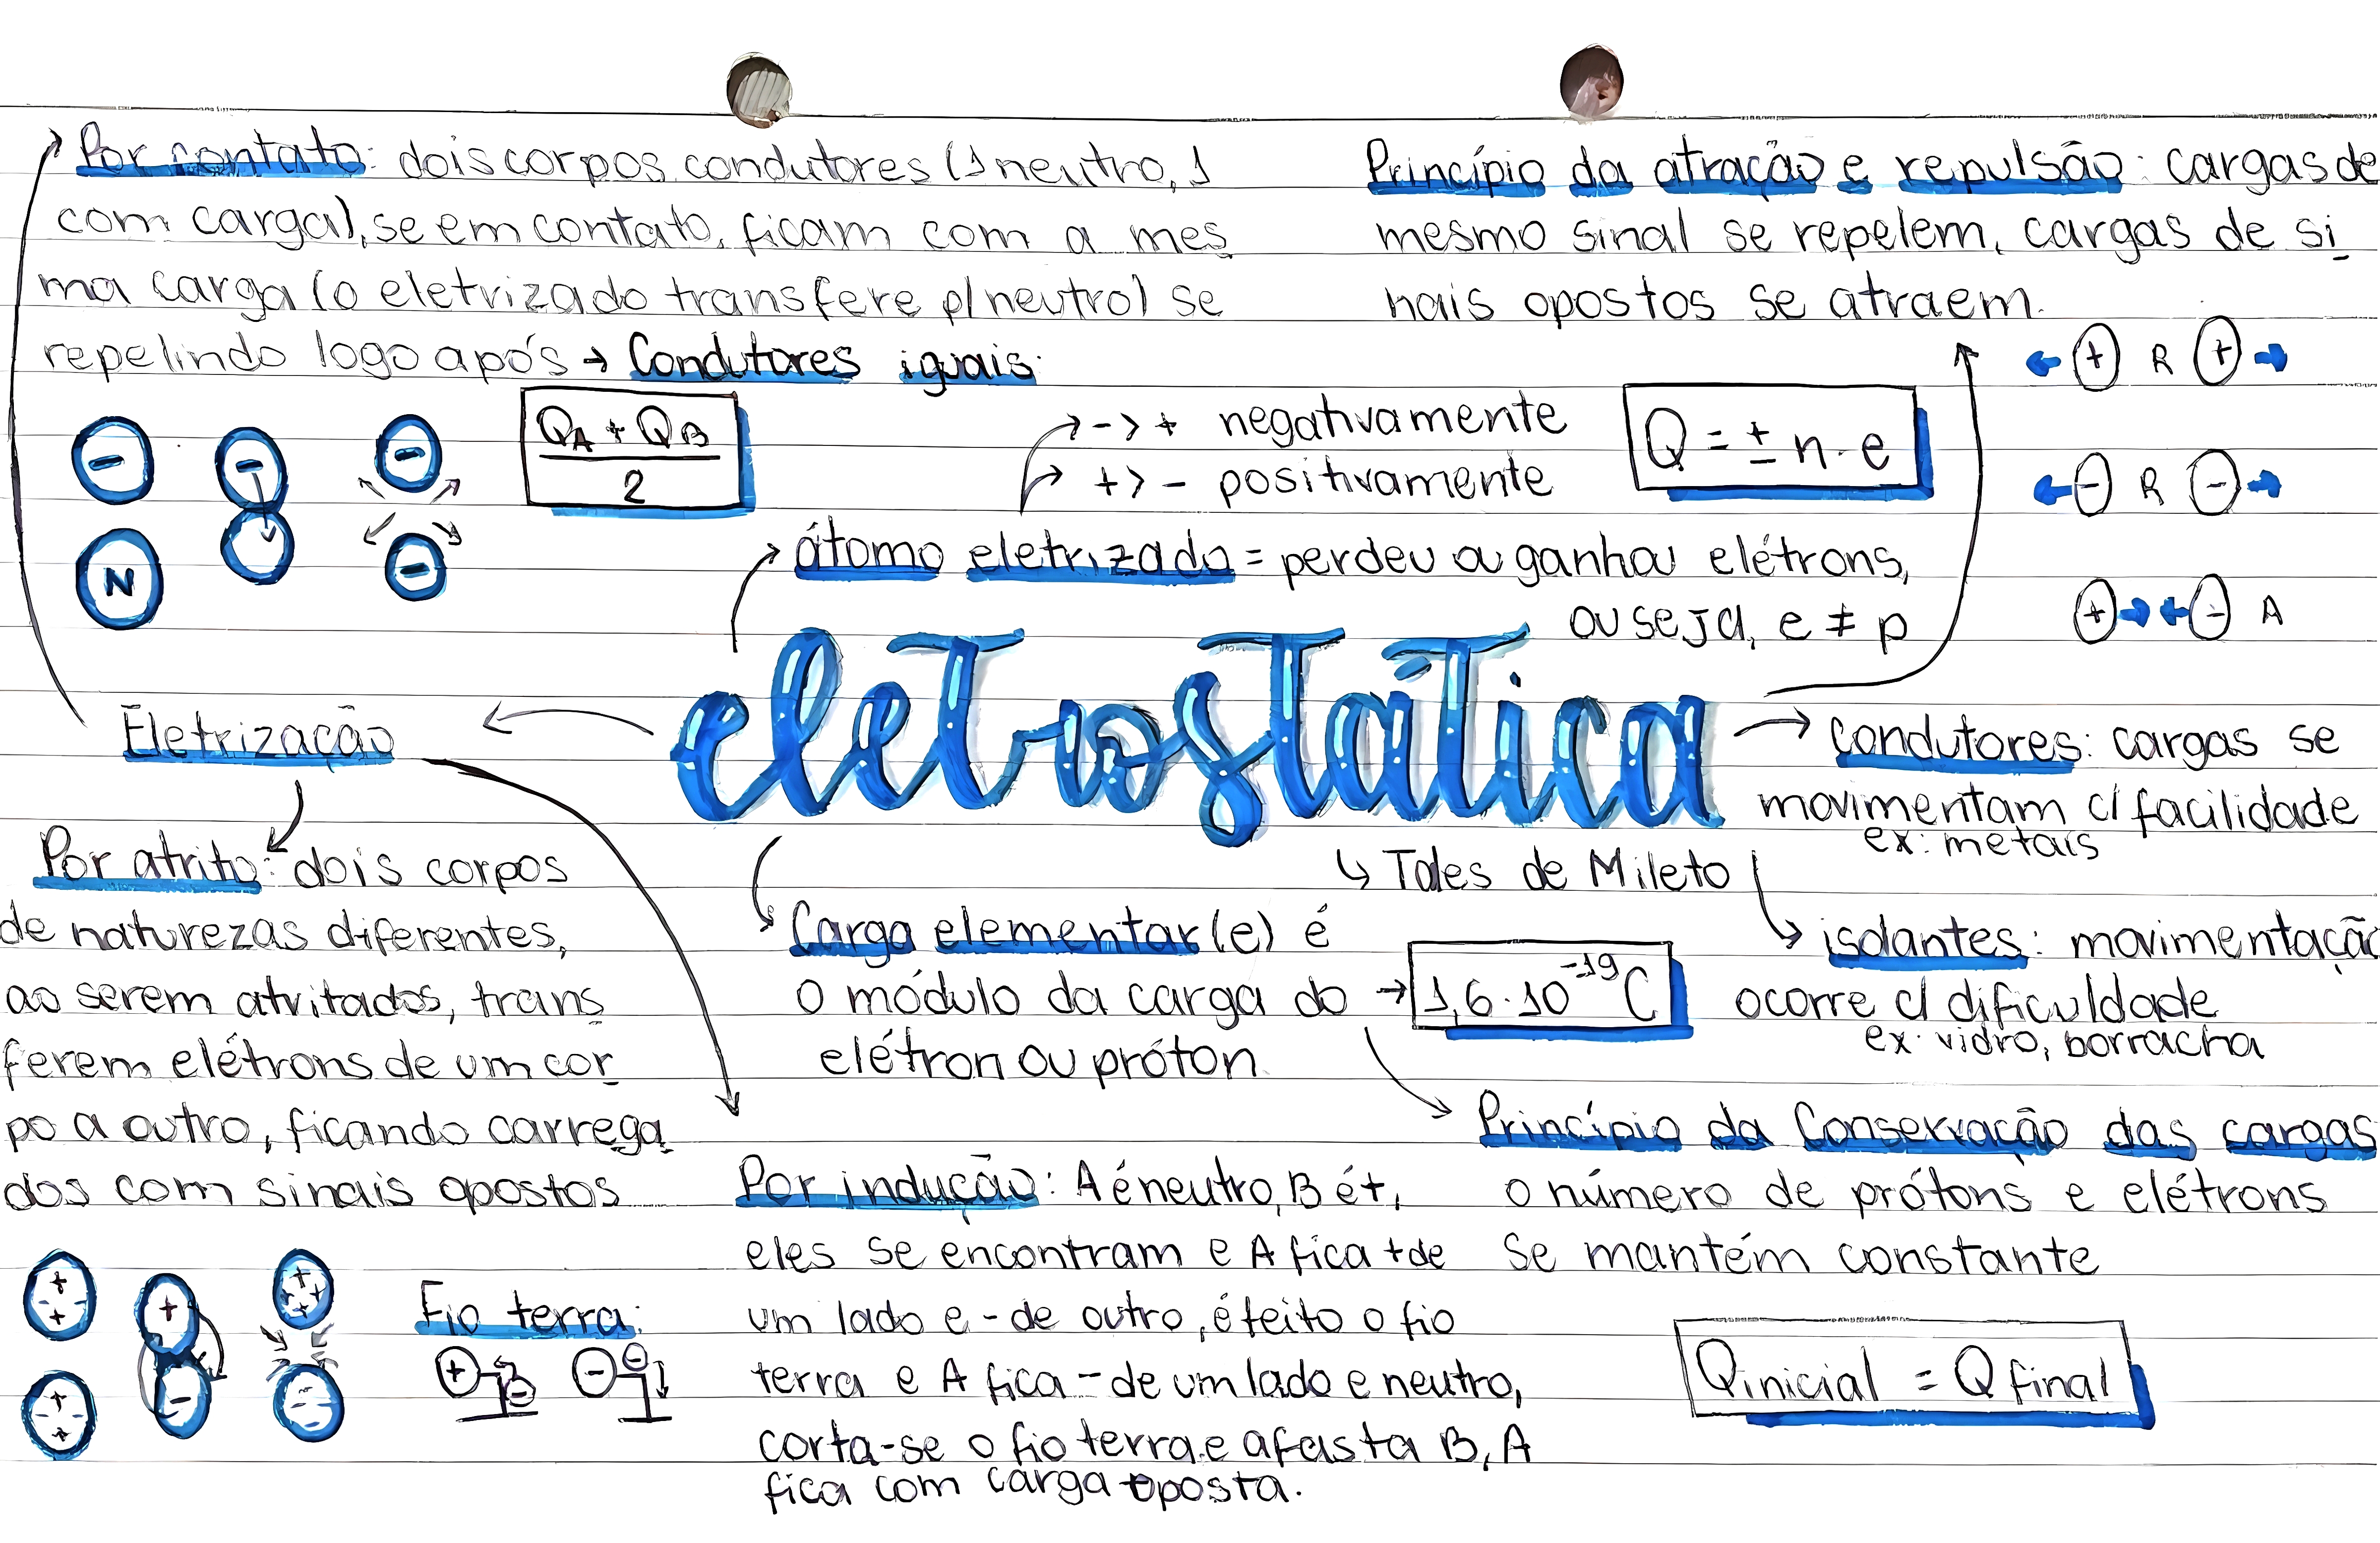 Por contato: dois corpos condutores (1 neutro, 1
com carga), se em contato, ficam com a mes
ma carga (o eletrizado transfere p/ neutro) se
repelindo logo após → Condutores iguais:
QA + QB
2
-
N
-
-
-
Princípio da atração e repulsão: cargas de
mesmo sinal se repelem, cargas de si
nais opostos se atraem.
+ R +
- R -
+ - A
- > + negativamente
+ > - positivamente
Q = ± n · e
átomo eletrizado = perdeu ou ganhou elétrons,
ou seja, e ≠ p
eletrostática
↳ Tales de Mileto
Eletrização
Por atrito: dois corpos
de naturezas diferentes,
ao serem atritados, trans
ferem elétrons de um cor
po a outro, ficando carrega
dos com sinais opostos
Fio terra:
+ -
- -
Carga elementar (e) é
o módulo da carga do → 1,6 · 10⁻¹⁹ C
elétron ou próton
condutores: cargas se
movimentam c/ facilidade
ex: metais
isolantes: movimentação
ocorre c/ dificuldade
ex: vidro, borracha
Por indução: A é neutro, B é +,
eles se encontram e A fica + de
um lado e - de outro, é feito o fio
terra e A fica - de um lado e neutro,
corta-se o fio terra e afasta B, A
fica com carga oposta.
Princípio da Conservação das cargas
o número de prótons e elétrons
se mantém constante
Qinicial = Qfinal